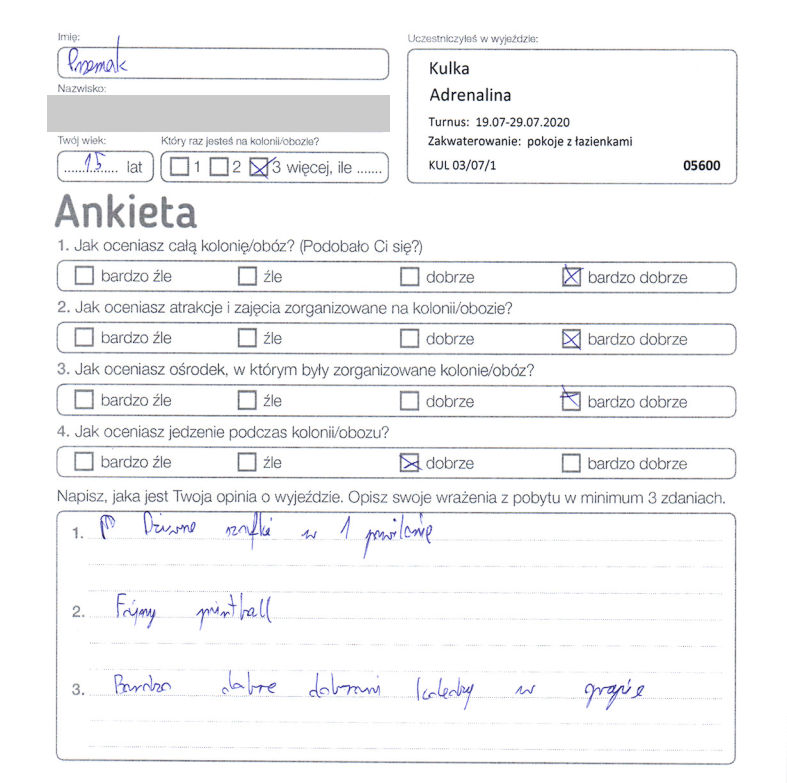 Imię:
Przemek
Uczestniczyłeś w wyjeździe:
Kulka
Adrenalina
Turnus: 19.07-29.07.2020
Zakwaterowanie: pokoje z łazienkami
KUL 03/07/1 05600
Nazwisko:
Twój wiek:
15 lat
Który raz jesteś na kolonii/obozie?
1 2 3 więcej, ile .......
Ankieta
1. Jak oceniasz całą kolonię/obóz? (Podobało Ci się?)
bardzo źle źle dobrze bardzo dobrze
2. Jak oceniasz atrakcje i zajęcia zorganizowane na kolonii/obozie?
bardzo źle źle dobrze bardzo dobrze
3. Jak oceniasz ośrodek, w którym były zorganizowane kolonie/obóz?
bardzo źle źle dobrze bardzo dobrze
4. Jak oceniasz jedzenie podczas kolonii/obozu?
bardzo źle źle dobrze bardzo dobrze
Napisz, jaka jest Twoja opinia o wyjeździe. Opisz swoje wrażenia z pobytu w minimum 3 zdaniach.
1. Dziwne szafki w 1 pawilonie
2. Fajny paintball
3. Bardzo dobre dobrani koledzy w grupie